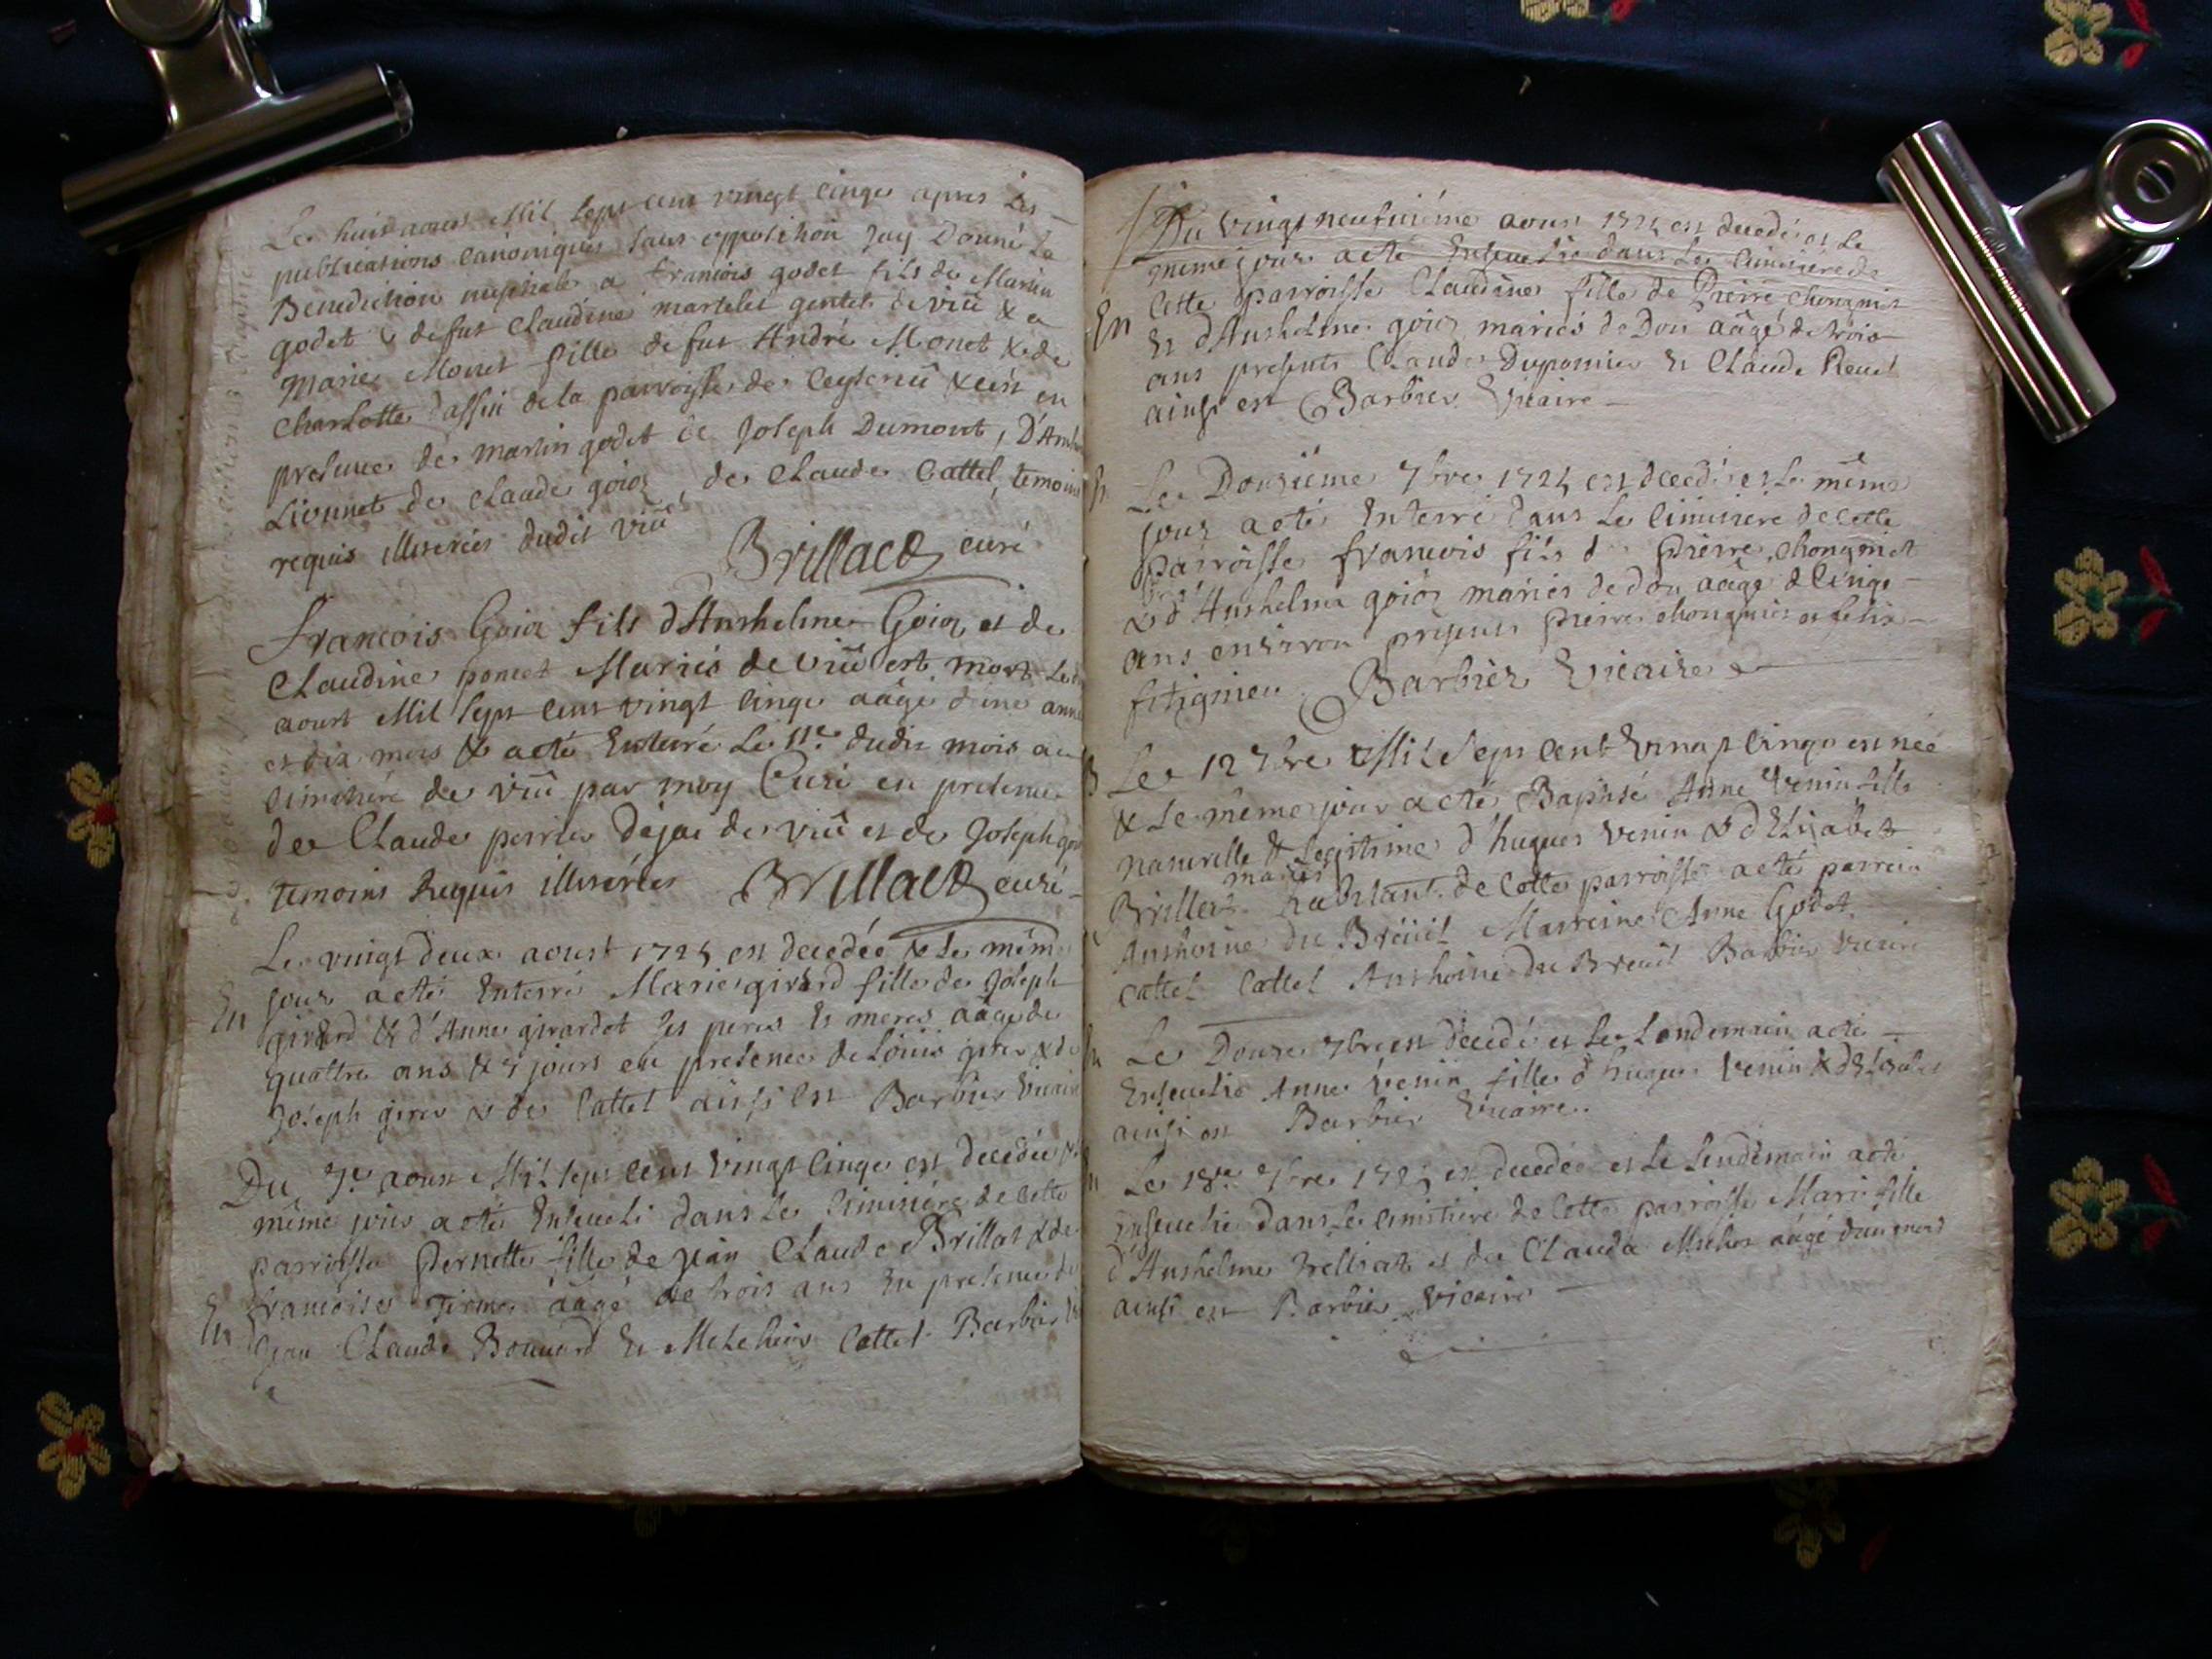 Le huit aoust Mil sept cent vingt cinq apres les
publications canoniques sans opposition Jay Donné la
Benediction nuptiale a francois godet fils de Martin
godet & de fut Claudine martelet gentet de viû & a
Marie Monet fille de fut André Monet & de
Charlotte dassin de la parroisse de Ceyserieû & c'est en
presence de martin godet de Joseph Dumont, D'Anth
Lionnet de Claude goioz, de Claude Cattel, temoins
requis illiterées dudit viû
Brillaes curé
francois Goioz fils d'Anthelme Goioz et de
Claudine poncet Mariés de viû est mort le
aoust Mil sept cent vingt cinq aâgé d'une anné
et dix mois & a eté Enterré Le 11e dudit mois au
cimetiere de viû par moy Curé en presence
de Claude perrier Dejac de viû et de Joseph goi
temoins Requis illiterées Brillaes curé
Le vingt deux aoust 1725 est decedée & le même
jour a eté Enterré Marie girard fille de Joseph
En
girard & d'Anne girardot ses peres Et meres aâgé de
quattre ans & 5 jours en presence de Loüis &
Joseph & de Cattel ainsi est Barbier Vicaire
Du 7e aoust Mil sept cent vingt cinq est decedée &
même jour a eté Enseveli dans Le cimitiére de cette
parroisse Pernette fille de Jean Claude Brillat & de
francoise aâgé de trois ans En presence de
En
Jean Claude Bonnard Et Melchior Cattel Barbier
Du vingt neufviéme aoust 1725 est decedé et Le
meme jour a eté Ensevelie dans Le cimitiére de
Cette parroisse Claudine fille de Pierre chongnict
En
Et d'Anthelme goioz mariés de Don aâgé de trois
ans presents Claude Duponier Et Claude Revel
ainsi est Barbier Vicaire
Le Dousiéme 7bre 1725 est decedé et Le même
jour a eté Enterré dans Le cimitiere de cette
parroisse francois fils de Pierre chongnict
& d'Anthelme goioz mariés de don aâgé de cinq
ans environ presents pierre chongnict et felix
fitignieu Barbier Vicaire
B
Le 12 7bre Mil Sept Cent Vingt cinq est née
& Le même jour a eté Baptisé Anne Venin fille
naturelle & Legitime d'hugues Venin & d'Elisabet
mariés
Brillat habitant de cette parroisse a eté parrein
Anthoine du Breüil Marreine Anne Godet
cattel Cattel Anthoine du Breüil Barbier Vicaire
Le Douse 7bre est decedé et Le Lendemain a eté
Ensevelie Anne Venin fille d'hugues Venin & d'Elisabet
ainsi est Barbier Vicaire.
Le 18e 7bre 1725 est decedée et Le Lendemain a eté
Ensevelie dans Le cimitiere de cette parroisse Mari fille
d'Anthelme et de Clauda aâgé d'un mois
ainsi est Barbier Vicaire